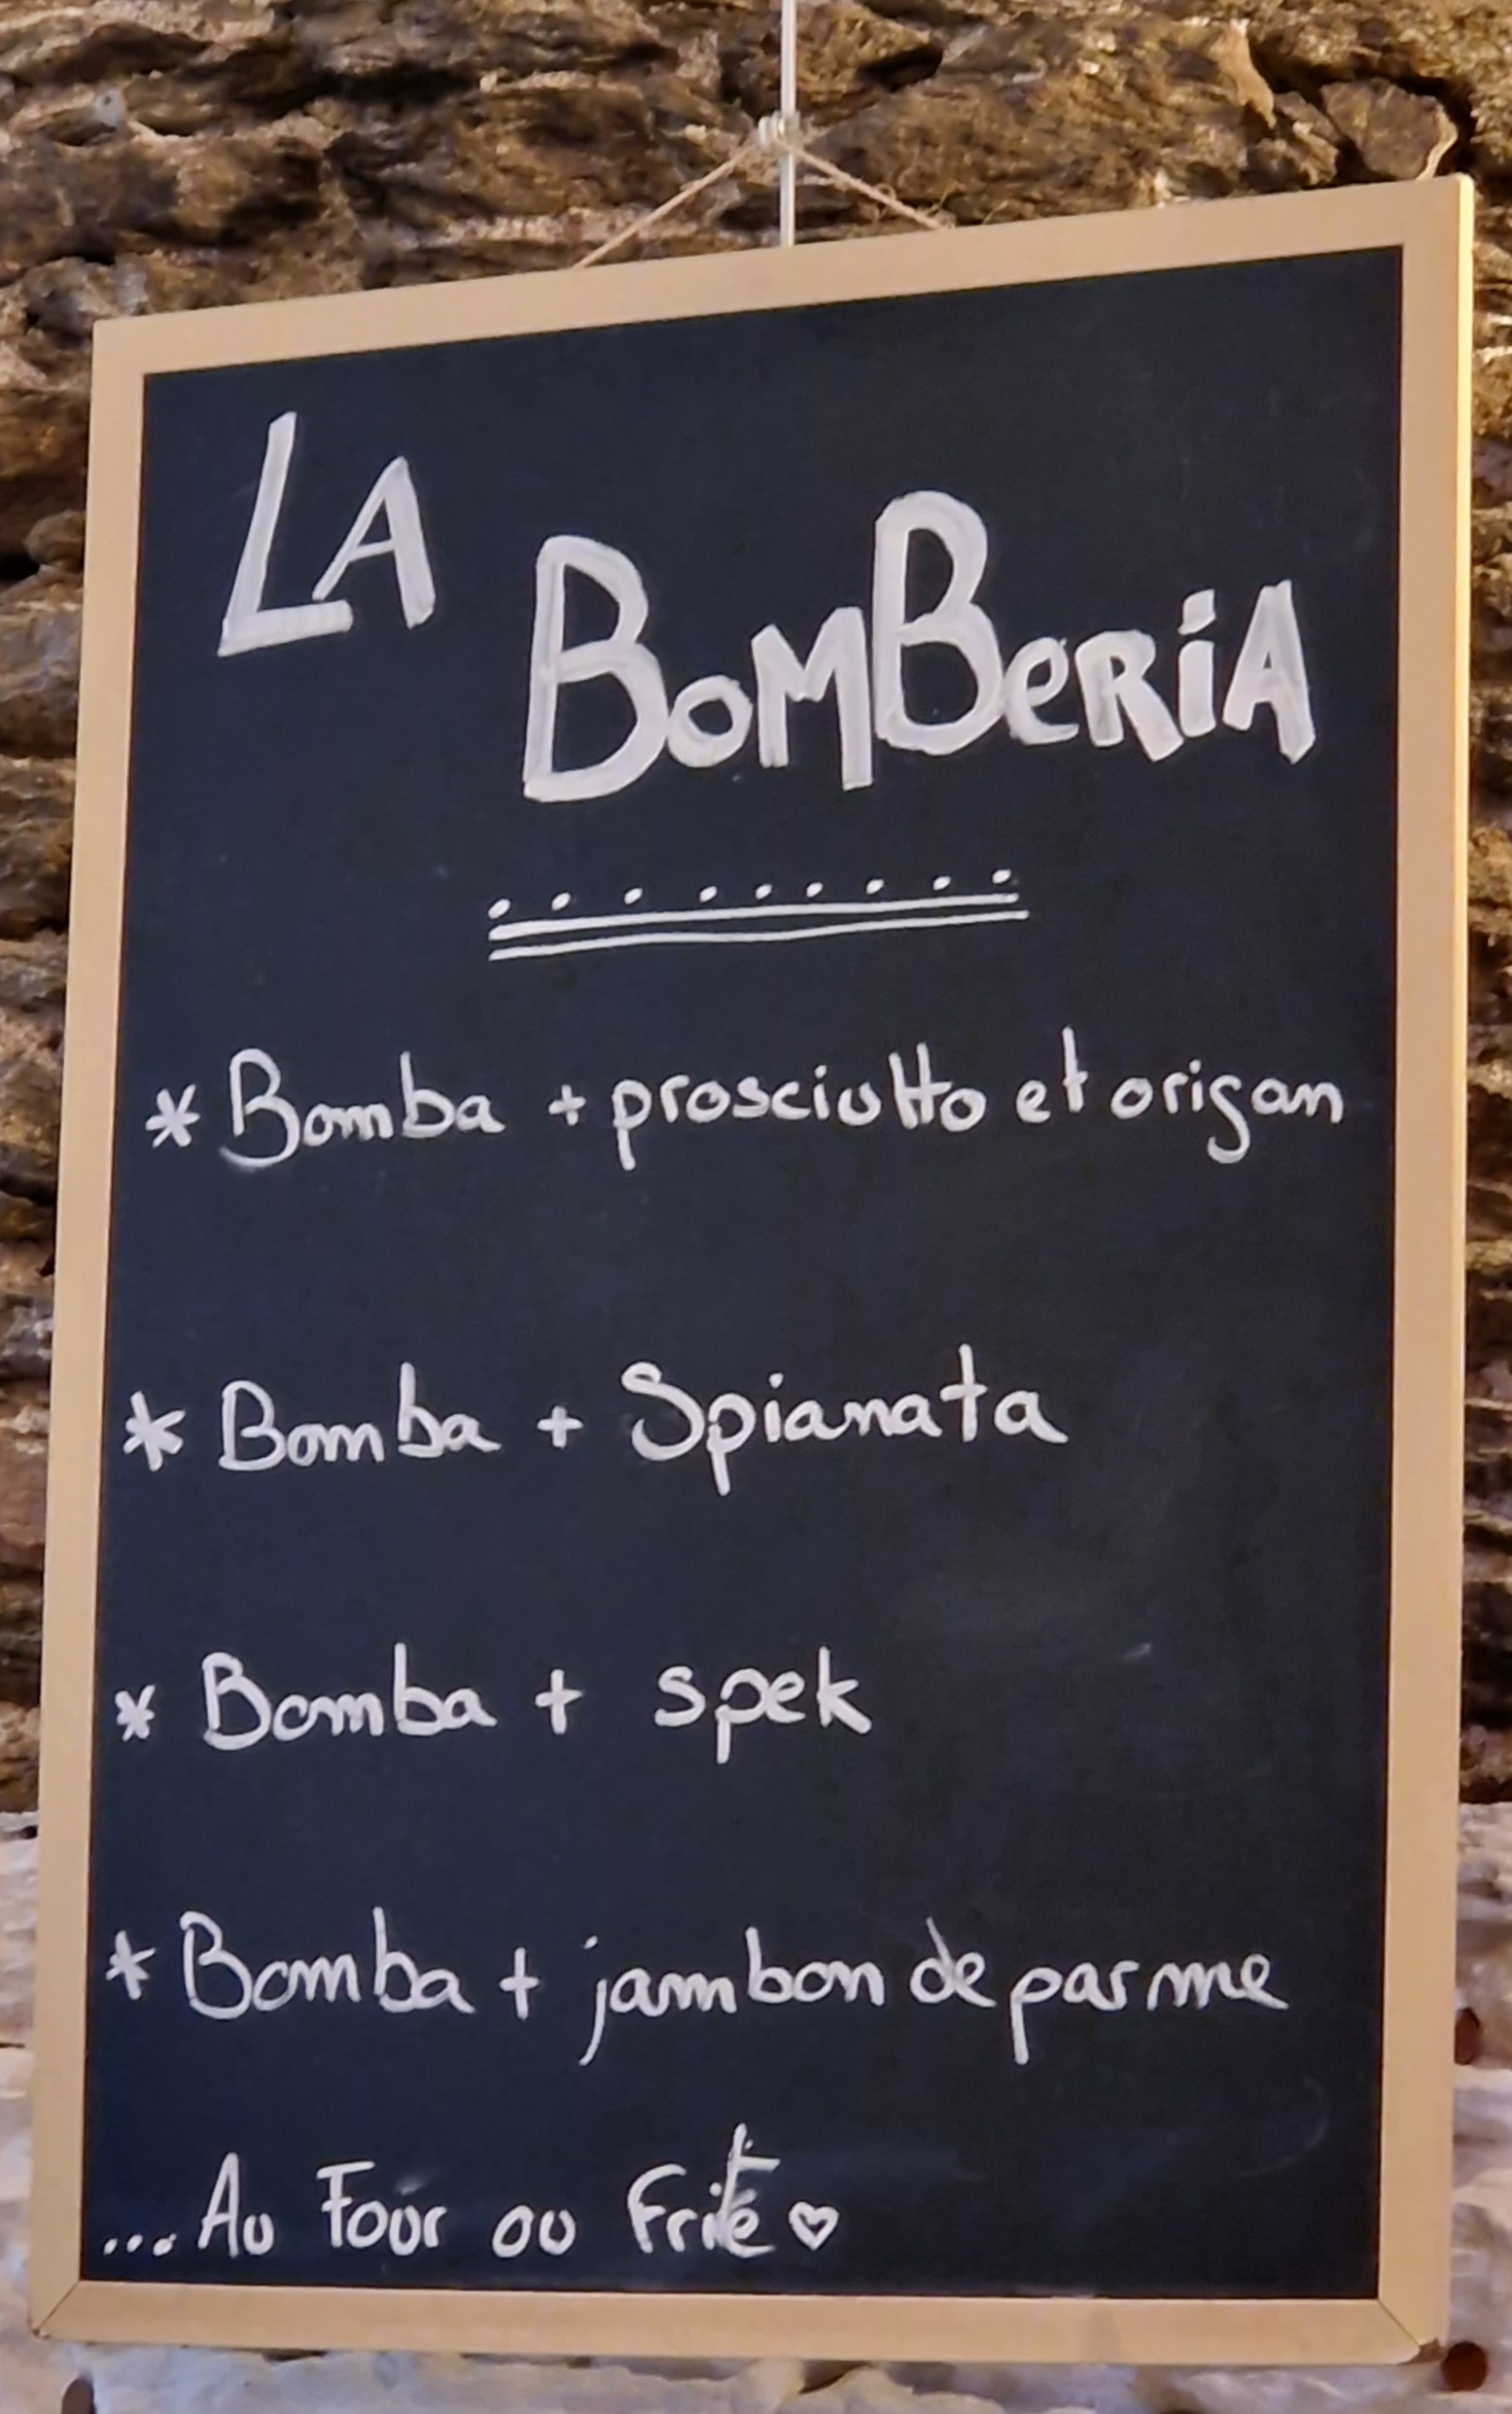 LA
BOMBERIA
* Bomba + prosciutto et origan
* Bomba + Spianata
* Bomba + spek
* Bomba + jambon de parme
... Au Four ou Frite ♡